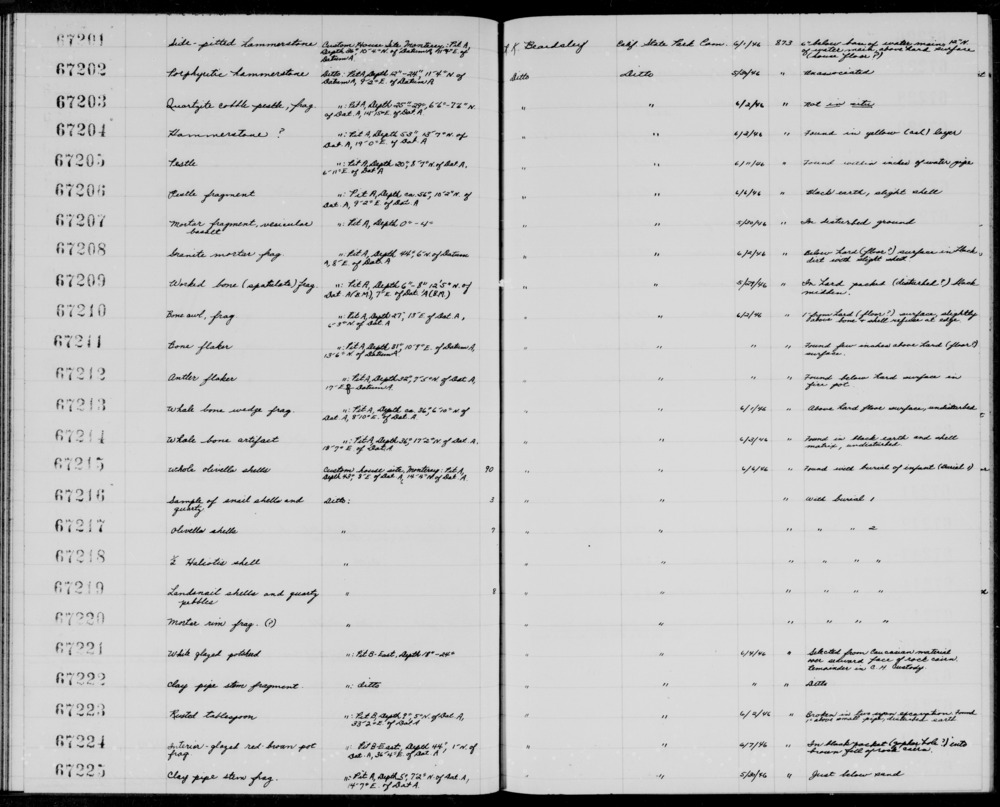 67201 Side-pitted hammerstone Custom House Site, Monterey: Pit A, J.K. Beardsley Calif State Park Com. 6/1/46 873
Datum A
(house floor?)
67202 Porphyritic hammerstone Ditto: Pit A, Depth 12"-24", 11'4" N of Ditto Ditto 5/30/46 " Unassociated
Datum A, 9'2" E. of Datum A
67203 Quartzite cobble pestle, frag. ": Pit A, Depth 25"-29", 6'6"-7'6" N. " " 6/2/46 " not in situ
of Dat. A, of Dat. A
67204 Hammerstone ? ": Pit A, Depth 53", 13'7" N. of " " 6/2/46 " Found in yellow (ash) layer
Dat. A, 19'0" E. of Dat. A
67205 Pestle ": Pit A, Depth 20", 8'7" N. of Dat. A, " " " Found within inches of water pipe
6'11" E. of Dat. A
67206 Pestle fragment ": Pit A, Depth ca. 56", 10'2" N. of " " 6/6/46 " black earth, slight shell
Dat. A, 9'2" E. of Dat. A
67207 Mortar fragment, vesicular ": Pit A, Depth 0"-4" " " 5/30/46 " In disturbed ground
basalt
67208 Granite mortar frag. ": Pit A, Depth 44", 6' N. of Datum " " " Below hard (floor?) surface in black
A, 8' E. of Dat. A dirt with slight shell
67209 Worked bone (spatulate) frag. ": Pit A, Depth 6"-8" 12'5" N. of " " 5/29/46 " In hard packed (disturbed?) black
Dat. A (B.M.), 7' E. of Dat. A (B.M.) midden.
67210 Bone awl, frag ": Pit A, Depth 27", 13' E. of Dat. A, " " 6/2/46 " 1" from hard (floor?) surface, slightly
N. of Dat. A above bone & shell refuse at edge
67211 Bone flaker ": Pit A, Depth 31", 10'9" E. of Datum A, " " " " Found few inches above hard (floor?)
13'6" N. of Datum A surface.
67212 Antler flaker ": Pit A, Depth 32", 7'5" N. of Dat. A, " " " " Found below hard surface in
17' E. of Datum A fire pot
67213 Whale bone wedge frag. ": Pit A, Depth ca. 36", 6'10" N of " " 6/1/46 " Above hard floor surface, undisturbed
Dat. A, 8'10" E. of Dat. A
67214 Whale bone artifact ": Pit A, Depth 36", 17'2" N. of Dat. A, " " 6/3/46 " Found in black earth and shell
18'7" E. of Dat. A matrix, undisturbed.
67215 whole olivella shells Custom house site, Monterey: Pit A, 90 " " 6/6/46 " Found with burial of infant (Burial 1)
Depth 43", 8' E. of Dat A, 14'5" N. of Dat. A
67216 Sample of snail shells and Ditto: 3 " " " With burial 1
quartz
67217 Olivella shells " 7 " " " " " 2
67218 ½ Haliotis shell " " " " " " " "
67219 Landsnail shells and quartz " 8 " " " " " "
pebbles
67220 Mortar rim frag. (?) " " " " " " "
67221 White glazed potsherd ": Pit B-East, Depth 18"-24" " " 6/4/46 " Selected from Caucasian material
over seaward face of rock cairn
remainder in C.H. Custody
67222 Clay pipe stem fragment ": ditto " " " " Ditto
67223 Rusted tablespoon ": Pit B, Depth 9", 5' N. of Dat. A, " " " Broken in two upon excavation found
33'2" E. of Dat. A above small pipe, disturbed earth
67224 Interior-glazed red brown pot ": Pit B-East, Depth 44", 1' N. of " " 6/7/46 " In black pocket (gopher hole?) into
frag. Dat. A, 36'4" E. of Dat. A brown fill of rock cairn.
67225 Clay pipe stem frag. ": Pit A, Depth 5", 7'2" N of Dat. A, " " 5/31/46 " Just below sand
14'7" E. of Dat. A